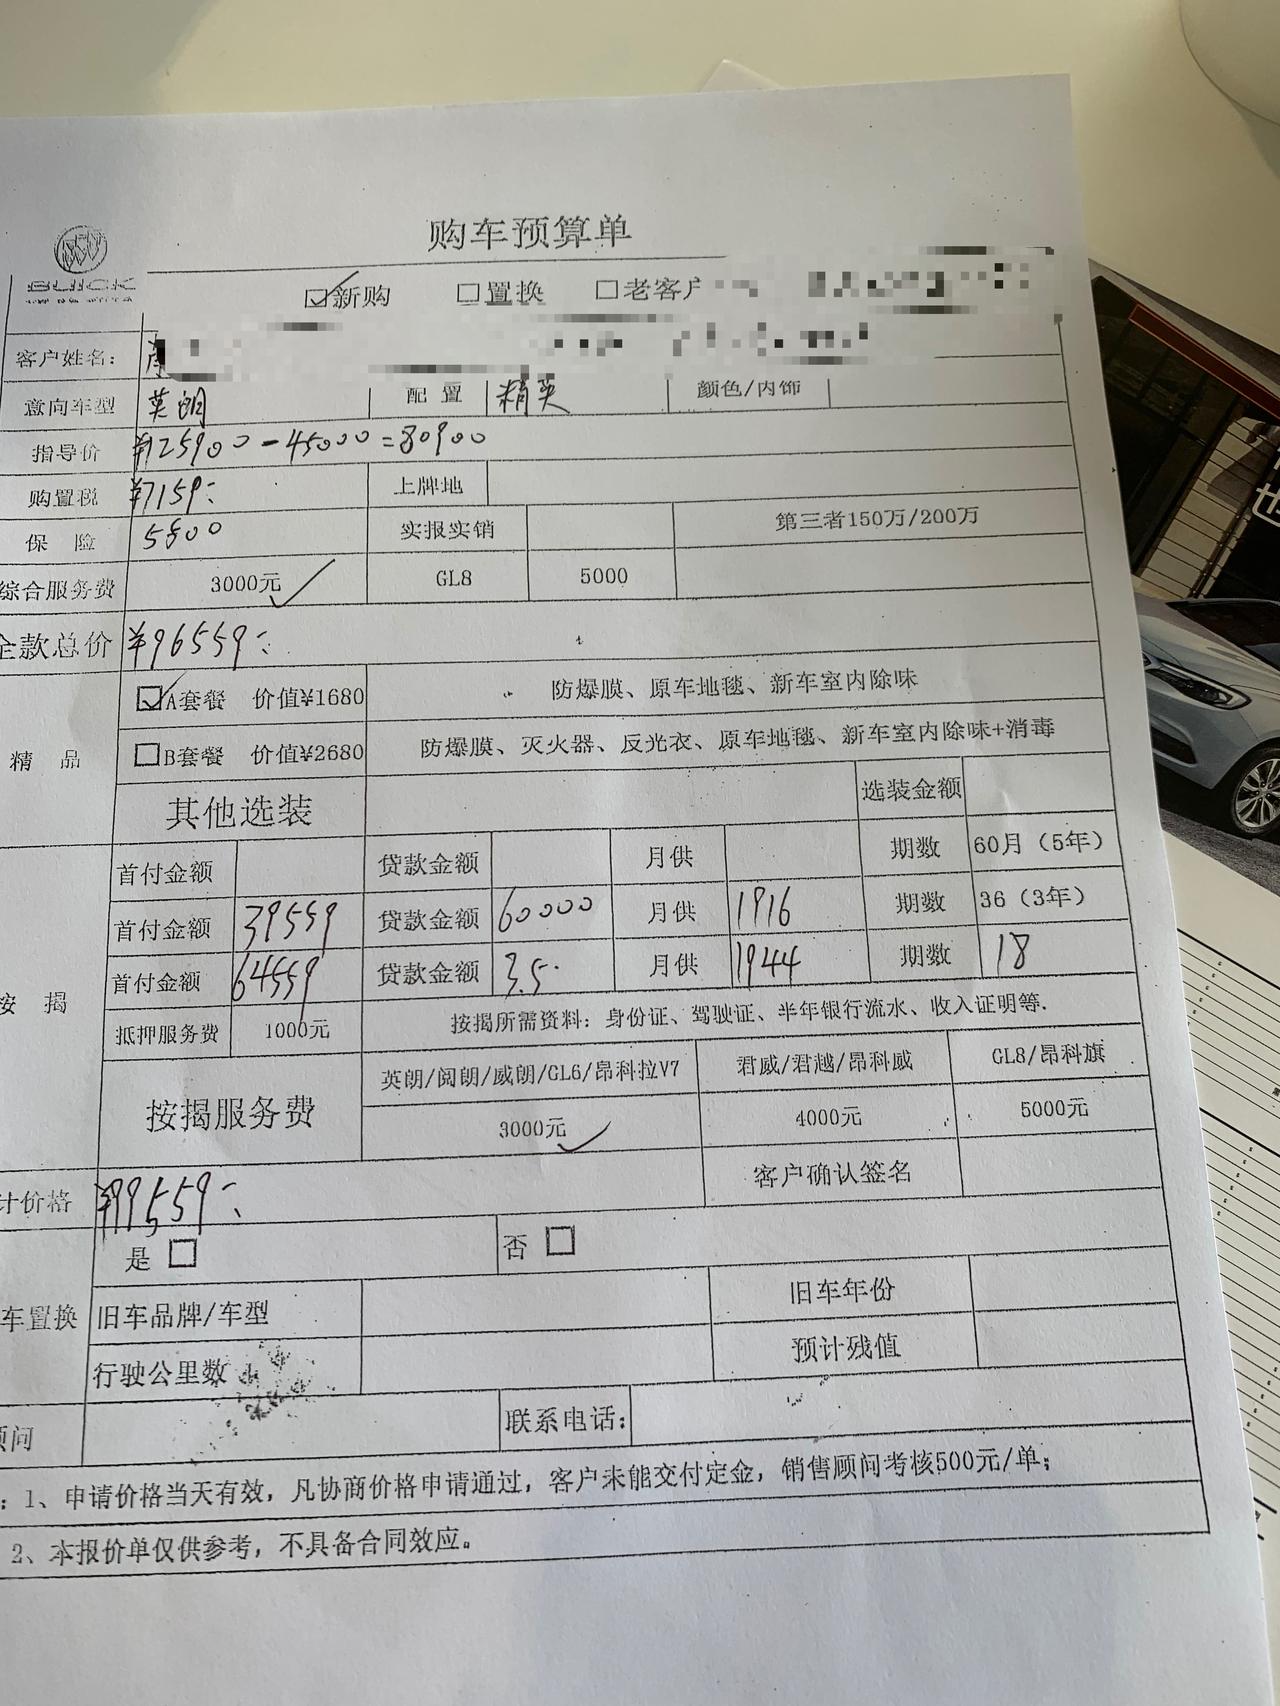 购车预算单
BUICK
新购 置换 老客户
客户姓名：
意向车型 英朗 配置 精英 颜色/内饰
指导价 ¥125900-45000=80900
购置税 ¥7159: 上牌地
保 险 5500 实报实销 第三者150万/200万
综合服务费 3000元 GL8 5000
全款总价 ¥96559:
A套餐 价值¥1680 防爆膜、原车地毯、新车室内除味
精 品
B套餐 价值¥2680 防爆膜、灭火器、反光衣、原车地毯、新车室内除味+消毒
其他选装 选装金额
首付金额 贷款金额 月供 期数 60月（5年）
首付金额 39559 贷款金额 60000 月供 1916 期数 36（3年）
首付金额 64559 贷款金额 3.5. 月供 1944 期数 18
按 揭
抵押服务费 1000元 按揭所需资料：身份证、驾驶证、半年银行流水、收入证明等.
按揭服务费 英朗/阅朗/威朗/GL6/昂科拉V7 君威/君越/昂科威 GL8/昂科旗
3000元 4000元 5000元
计价格 ¥99559: 客户确认签名
是 否
车置换 旧车品牌/车型 旧车年份
行驶公里数 预计残值
顾问 联系电话：
：1、申请价格当天有效，凡协商价格申请通过，客户未能交付定金，销售顾问考核500元/单；
2、本报价单仅供参考，不具备合同效应。